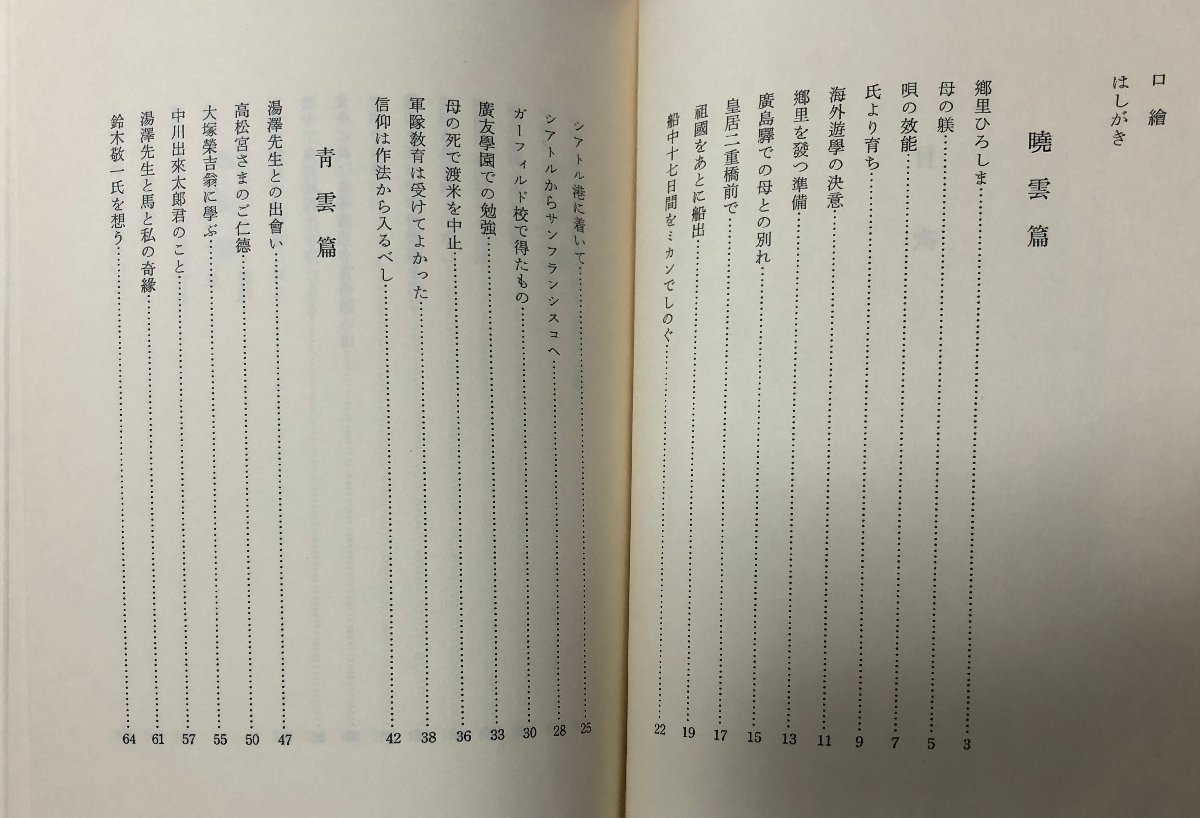 口繪
はしがき
曉雲篇
鄕里ひろしま……3
母の躾……5
唄の効能……7
氏より育ち……9
海外遊學の決意……11
鄕里を發つ準備……13
廣島驛での母との別れ……15
皇居二重橋前で……17
祖國をあとに船出……19
船中十七日間をミカンでしのぐ……22
シアトル港に着いて……25
シアトルからサンフランシスコへ……28
ガーフィルド校で得たもの……30
廣友學園での勉強……33
母の死で渡米を中止……36
軍隊敎育は受けてよかった……38
信仰は作法から入るべし……42
靑雲篇
湯澤先生との出會い……47
高松宮さまのご仁德……50
大塚榮吉翁に學ぶ……55
中川出來太郞君のこと……57
湯澤先生と馬と私の奇緣……61
鈴木敬一氏を想う……64